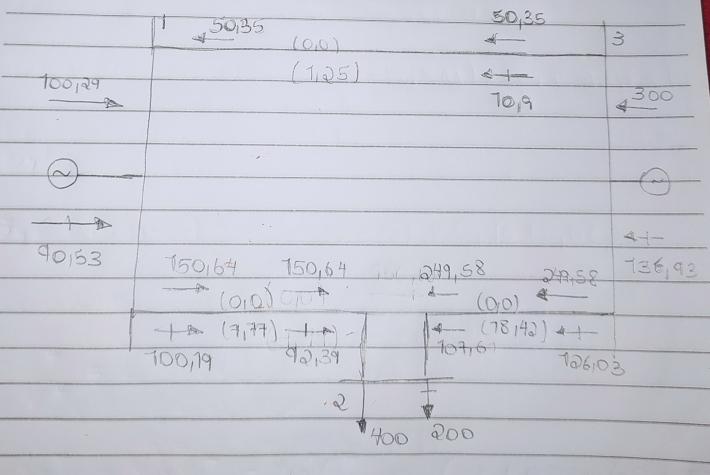 1 50,35 50,35 3
(0,0)
(1,25)
100,29 10,9 300
90,53 136,93
150,64 150,64 249,58 249,58
(0,0) (0,0)
(7,77) (18,42)
100,19 92,39 107,6 126,03
2
400 200